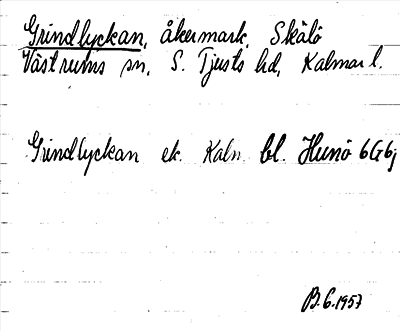 Grindlyckan, åkermark, Skälö
Västrums sn, S. Tjusts hd, Kalmar l.
Grindlyckan ek. Kaln bl. Hunö 6G6j
B.G.1957